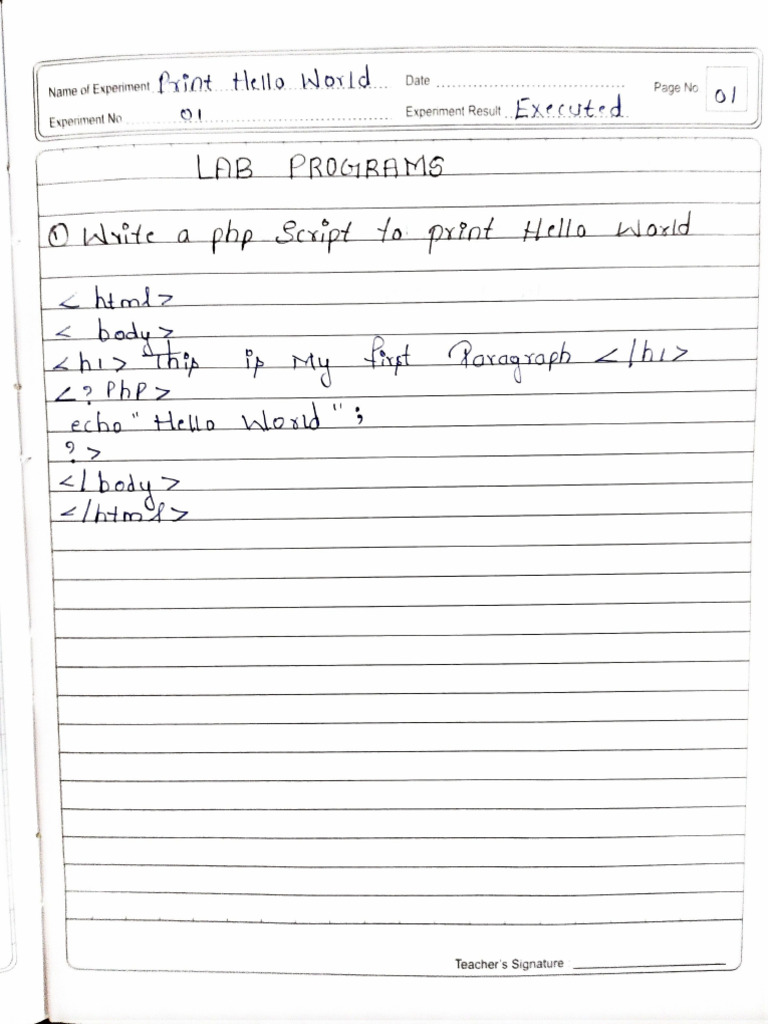 Name of Experiment Print Hello World Date Page No 01
Experiment No 01 Experiment Result Executed
LAB PROGRAMS
① Write a php Script to print Hello World
< html>
< body>
<h1> This is My first Paragraph </h1>
<? PhP>
echo " Hello World " ;
? >
</ body>
</html>
Teacher's Signature